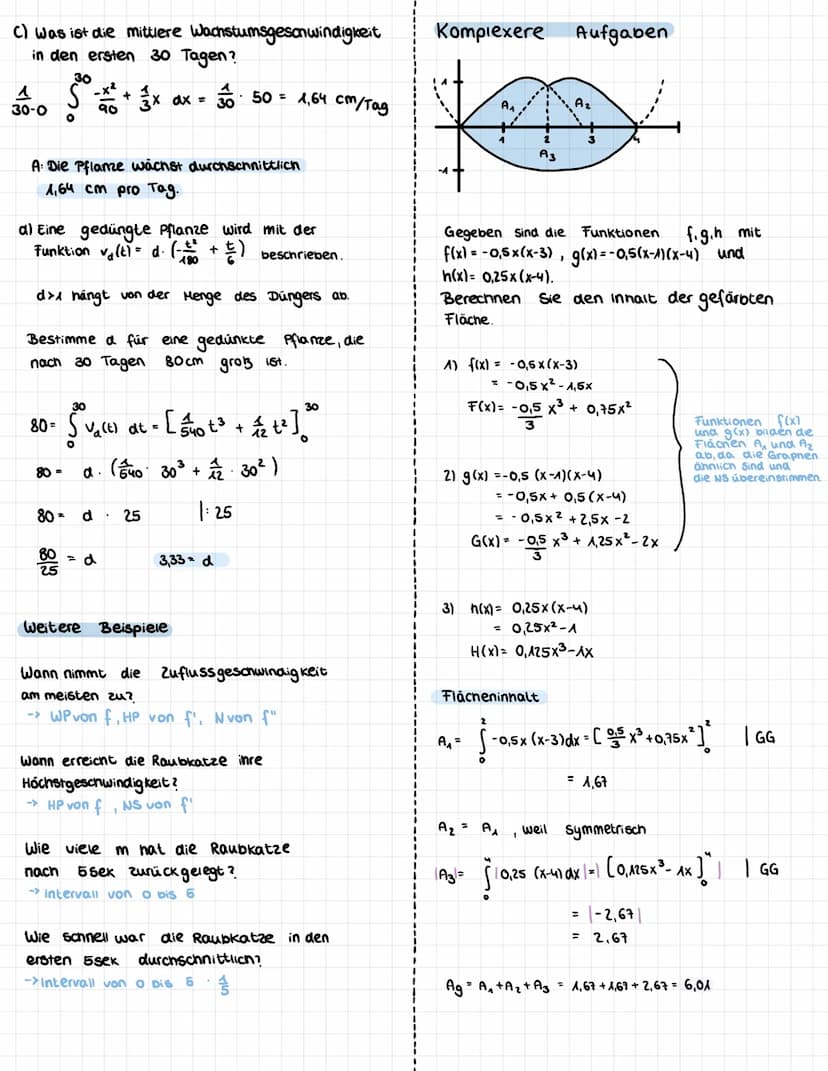 c) Was ist die mittlere Wachstumsgeschwindigkeit
in den ersten 30 Tagen?
1/(30-0) ∫₀³⁰ -x²/90 + 1/3x dx = 1/30 · 50 = 1,64 cm/Tag
A: Die Pflanze wächst durchschnittlich
1,64 cm pro Tag.
d) Eine gedüngte Pflanze wird mit der
Funktion v_d(t) = d · (-t²/180 + t/6) beschrieben.
d>1 hängt von der Menge des Düngers ab.
Bestimme d für eine gedünkte Pflanze, die
nach 30 Tagen 80cm groß ist.
80 = ∫₀³⁰ v_d(t) dt = [1/540 t³ + 1/12 t²]₀³⁰
80 = d · (1/540 · 30³ + 1/12 · 30²)
80 = d · 25 |: 25
80/25 = d 3,33 = d
Weitere Beispiele
Wann nimmt die Zuflussgeschwindigkeit
am meisten zu?
-> WP von f, HP von f', N von f"
Wann erreicht die Raubkatze ihre
Höchstgeschwindigkeit?
-> HP von f, NS von f'
Wie viele m hat die Raubkatze
nach 5sek zurückgelegt?
-> Intervall von 0 bis 5
Wie schnell war die Raubkatze in den
ersten 5sek durchschnittlich?
-> Intervall von 0 bis 5 · 1/5
Komplexere Aufgaben
1
A₁ A₂
1 2 3 4
A₃
-1
Gegeben sind die Funktionen f,g,h mit
f(x) = -0,5x(x-3), g(x) = -0,5(x-1)(x-4) und
h(x) = 0,25x(x-4).
Berechnen Sie den Inhalt der gefärbten
Fläche.
1) f(x) = -0,5x(x-3)
= -0,5x² - 1,5x
F(x) = -0,5/3 x³ + 0,75x²
2) g(x) = -0,5 (x-1)(x-4)
= -0,5x + 0,5 (x-4)
= -0,5x² + 2,5x - 2
G(x) = -0,5/3 x³ + 1,25x² - 2x
Funktionen f(x)
und g(x) bilden die
Flächen A₁ und A₂
ab, da die Graphen
ähnlich sind und
die NS übereinstimmen
3) h(x) = 0,25x(x-4)
= 0,25x² - 1
H(x) = 0,125x³ - 1x
Flächeninhalt
A₁ = ∫₀² -0,5x (x-3) dx = [0,5/3 x³ + 0,75x²]₀² | GG
= 1,67
A₂ = A₁, weil symmetrisch
|A₃| = ∫₀⁴ |0,25 (x-4) dx| = |[0,125x³ - 1x]₀⁴| | GG
= |-2,67|
= 2,67
Ag = A₁ + A₂ + A₃ = 1,67 + 1,67 + 2,67 = 6,01